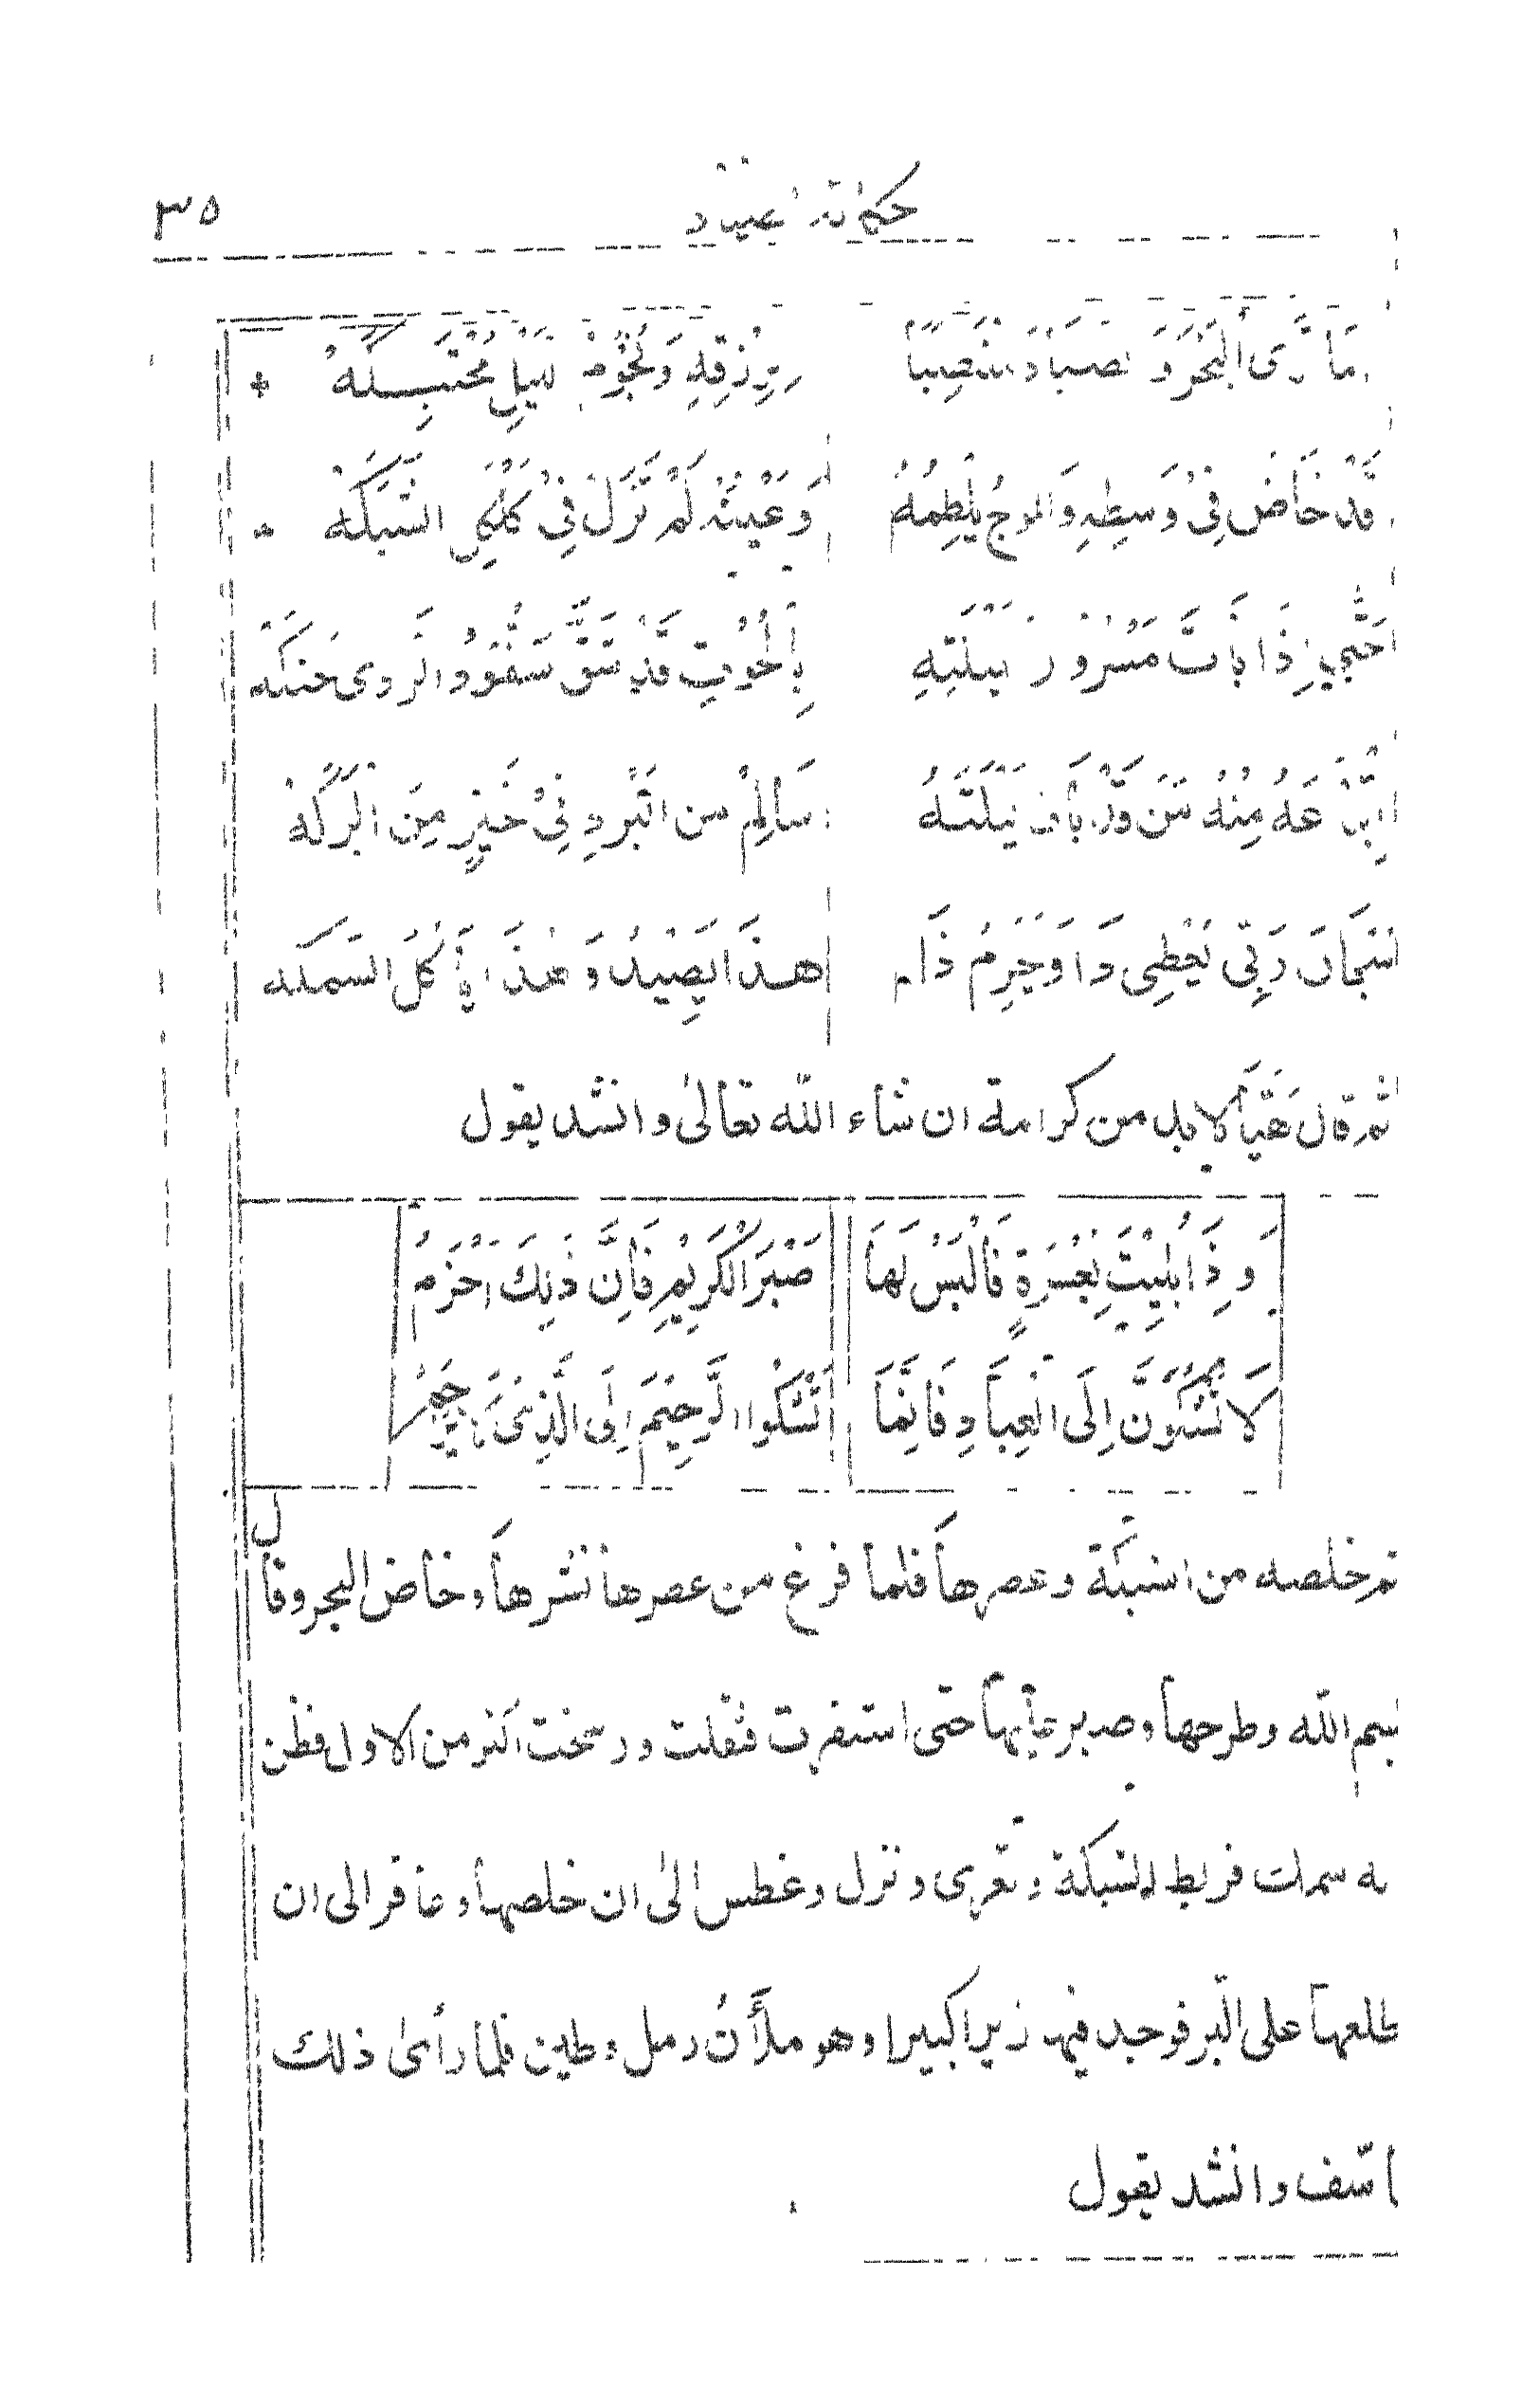 حكاية الصياد ٣٥
مَا تَرَى الْبَحْرَ وَالصَّيَّادَ مُنْتَصِبًا لِرِزْقِهِ وَنُجُومُ اللَّيْلِ مُحْتَبِكَهْ
قَدْ خَاضَ فِيْ وَسِطِهِ وَالمَوجُ يَلْطِمُهُ وَعَيْنُهُ لَمْ تَزَلْ فِيْ كَلْكَلِ الشَّبَكَهْ
حَتَّى إِذَا بَاتَ مَسْرُورًا بِلَيْلَتِهِ بِالْحُوْتِ قَدْ شَقَّ سَفُّوْدُ الرَّدى حَنَكَهْ
ابْتَاعَهُ مِنْهُ مَنْ قَدْ بَاتَ لَيْلَتَهُ سَالِمْ من الْبَردِ فِيْ خَيْرٍ مِنَ الْبَرَكَهْ
سُبْحَانَ رَبِّي يُعْطِي ذَا وَيَحْرِمُ ذَا هذَا يَصِيْدُ وَهذَا يَأْكُلُ السَّمَكَه
ثم قال هَيَّا لا بد من كرامة ان شاء الله تعالىٰ وانشد يقول
وَإِذَا بُلِيْتَ بِعُسْرَةٍ فَالْبَسْ لَهَا صَبْرَ الْكَرِيْمِ فَاِنَّ ذٰلِكَ اَحْزَمُ
لَا تَشْكُوَنَّ اِلَى الْعِبَادِ فَاِنَّمَا تَشْكُوا الرَّحِيْمَ اِلَى الَّذِيْ لَا يَرْحَمُ
ثم خلصه من الشبكة وعصرها فلما فرغ من عصرها نشرها وخاض البحر وقال
بسم الله وطرحها وصبر عليها حتى استقرت فثقلت ورسخت اكثر من الاول فظن
انه سمك فربط الشبكة وتعرى ونزل وغطس الىٰ ان خلصها وعافر الى ان
طلعها على البر فوجد فيها زيرا كبيرا وهو ملأنُ رمل وطين فلما رأى ذلك
تاسّف وانشد يقول